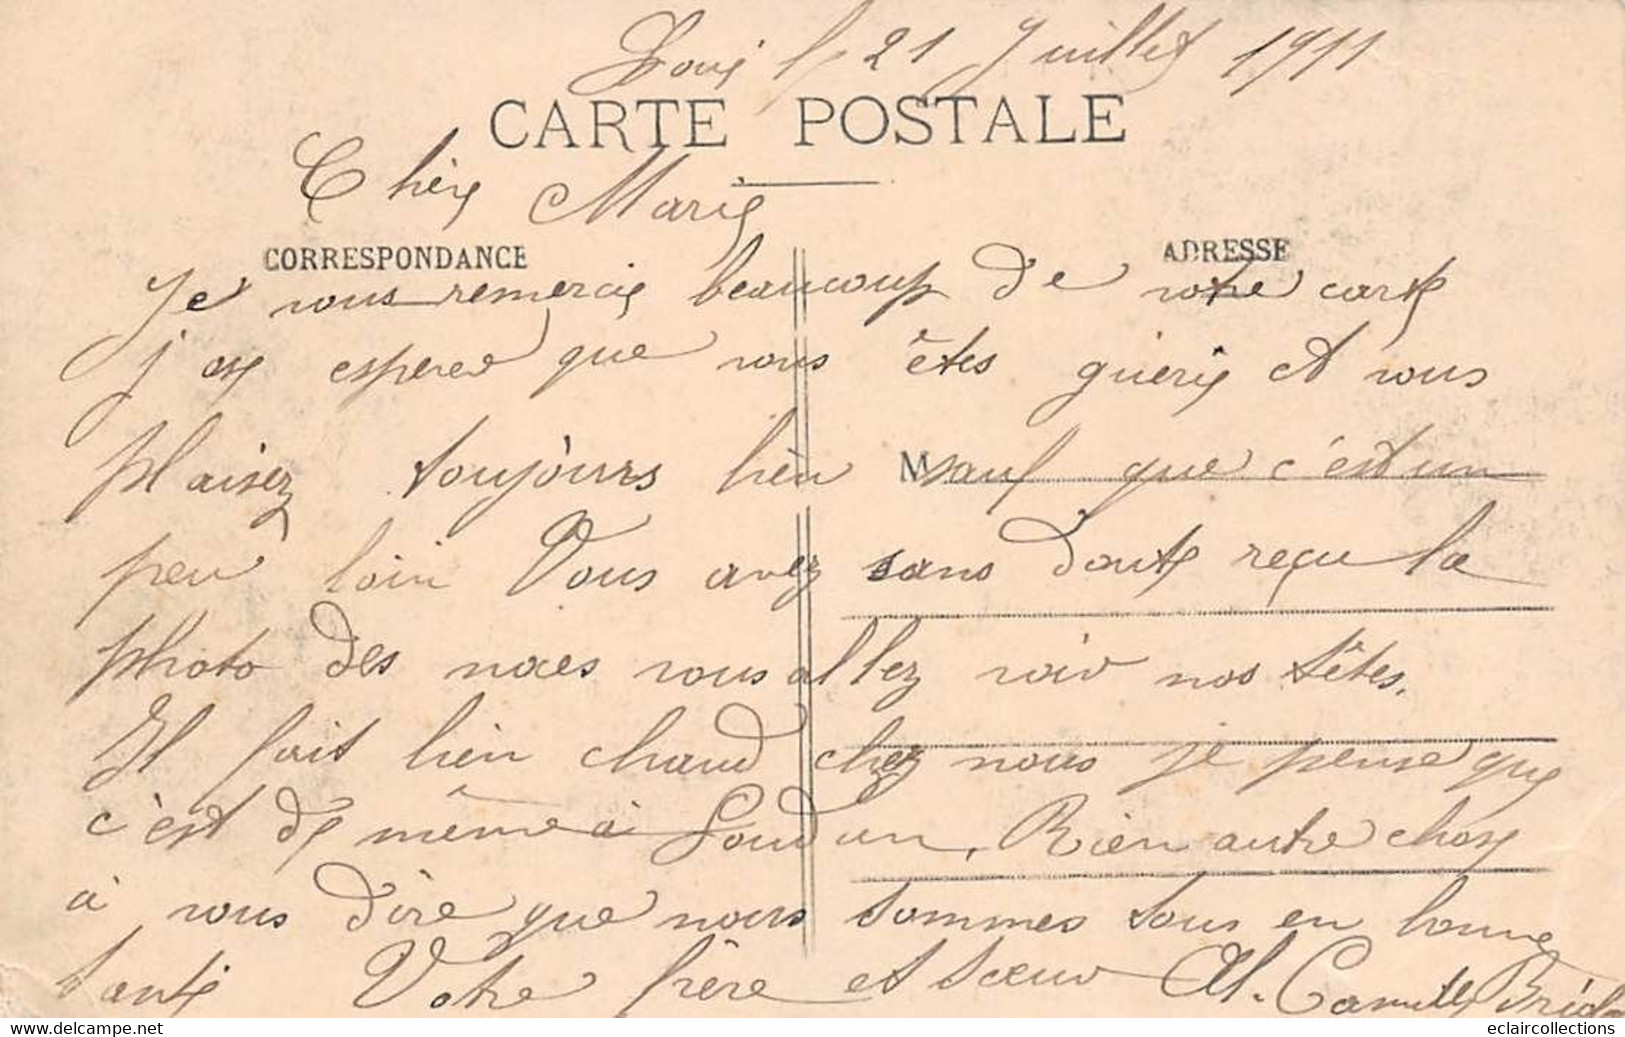 le 21 Juillet 1911
CARTE POSTALE
Chère Marie
CORRESPONDANCE
ADRESSE
Je vous remercie beaucoup de votre carte
j'ose esperer que vous êtes guerie et vous
plaisez toujours bien sauf que c'est un
M
peu loin Vous avez sans doute reçu la
photo des noces vous allez voir nos têtes.
Il fait bien chaud chez nous je pense que
c'est de même à Loudun, Rien autre chose
à vous dire que nous sommes tous en bonne
santé Votre frère et soeur Al. Camille
eclaircollections
www.delcampe.net